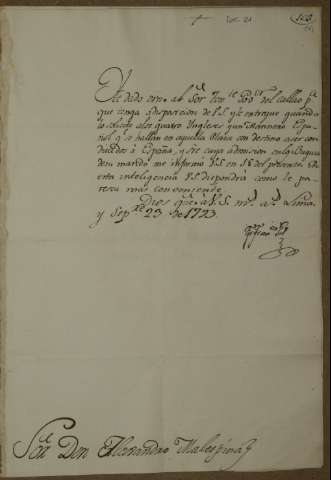 He dado orn. al Sor. Ten.te Gov.or del Callao p.a
que tenga a disposicion de V.S. y le entregue quando
lo solicite a los quatro Ingleses y un Marinero Espa-
ñol q.e se hallan en aquella Plaza con destino a ser con-
ducidos a España, y de cuya admision en los Buques
de su mando me informó V.S. en 18 del presente. En
esta inteligencia V.S. dispondrá como le pa-
resca mas conveniente.
Dios gue. a V.S. m.s a.s Lima
y Sep.re 23 de 1793.
Sor. Don Alexandro Malespina